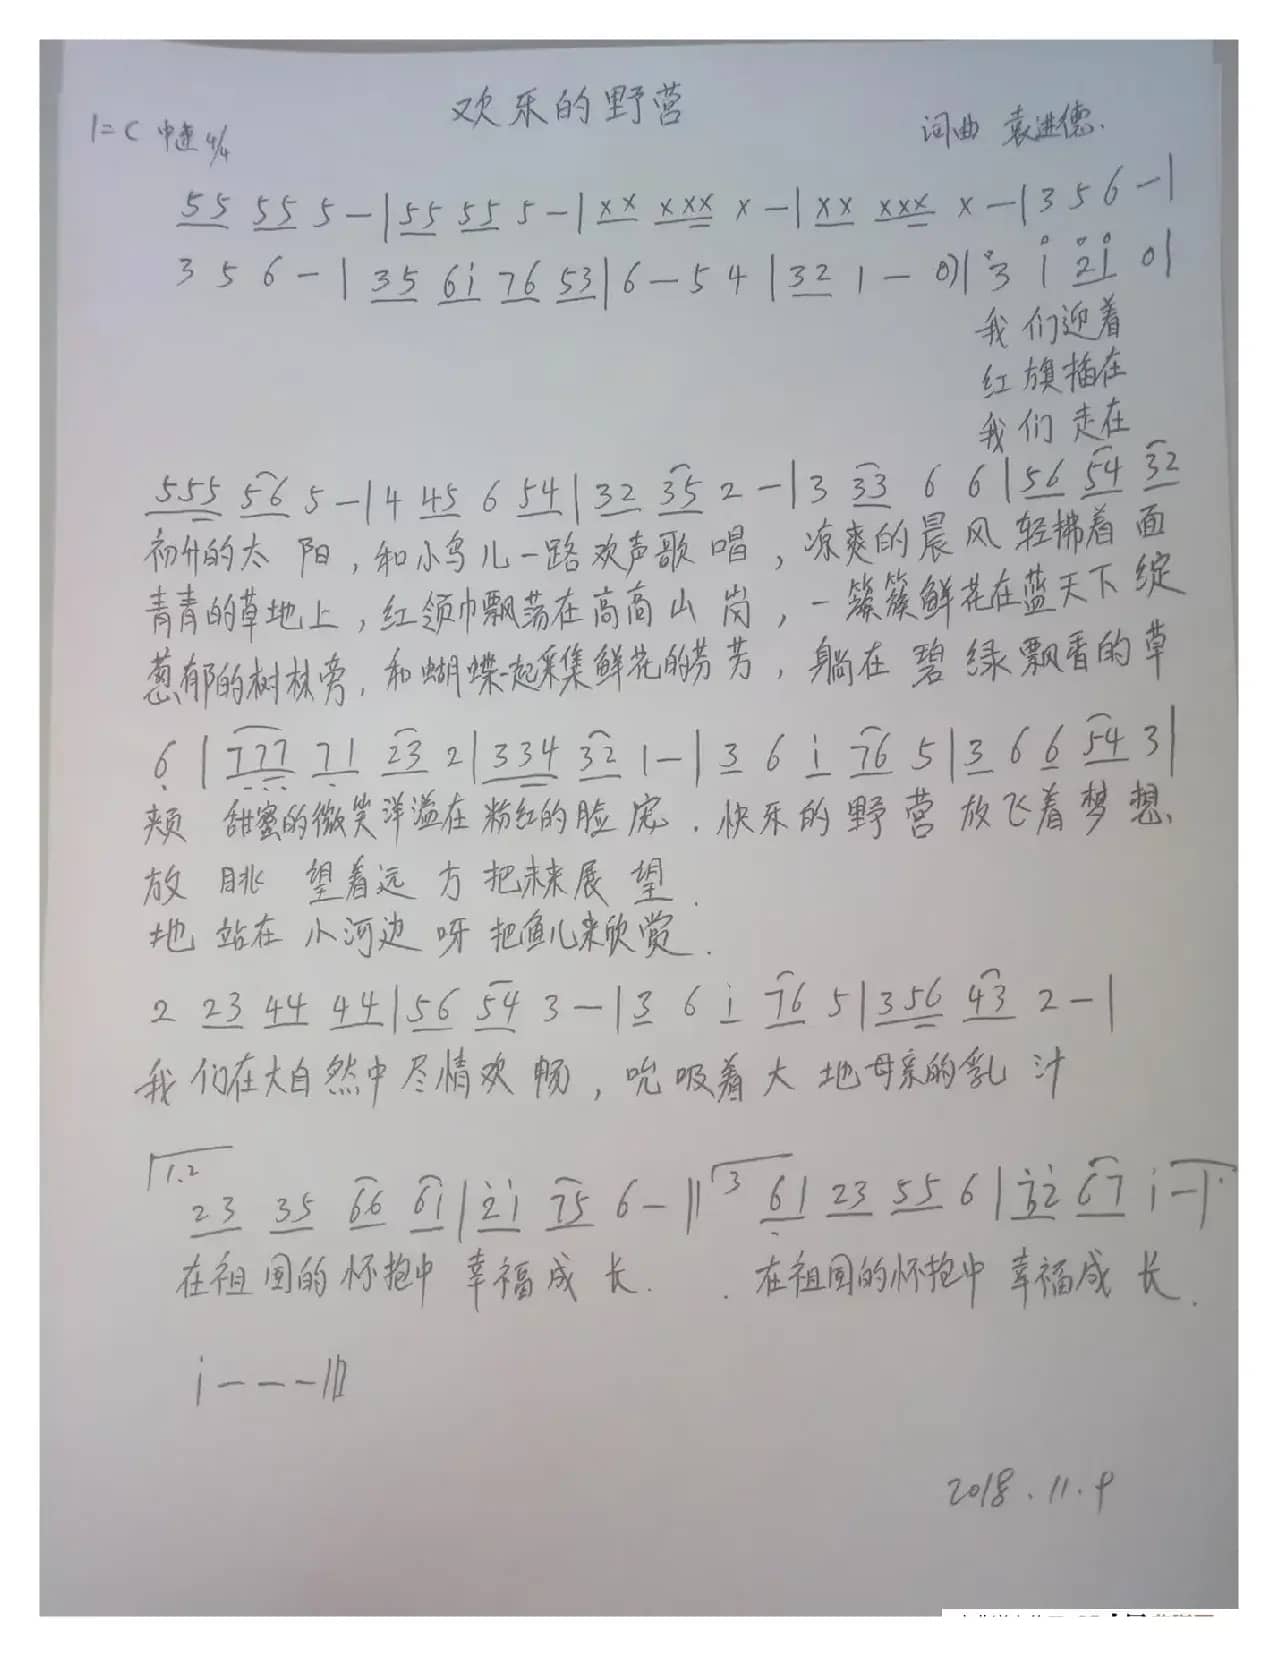 欢乐的野营
1=C 中速 4/4
词曲 袁进德.
55 55 5 - | 55 55 5 - | xx xxx x - | xx xxx x - | 3 5 6 - |
3 5 6 - | 35 6i 76 53 | 6 - 5 4 | 32 1 - 0) | 3 i 2i 0 |
我们迎着
红旗插在
我们走在
555 56 5 - | 4 45 6 54 | 32 35 2 - | 3 33 6 6 | 56 54 32
初升的太阳，和小鸟儿一路欢声歌唱，凉爽的晨风轻拂着面
青青的草地上，红领巾飘荡在高高山岗，一簇簇鲜花在蓝天下绽
葱郁的树林旁，和蝴蝶一起采集鲜花的芬芳，躺在碧绿飘香的草
6 | 777 71 23 2 | 334 32 1 - | 3 6 i 76 5 | 3 6 6 54 3 |
颊 甜蜜的微笑洋溢在粉红的脸庞．快乐的野营放飞着梦想、
放 眺望着远方把未来展望．
地 站在小河边呀把鱼儿来欣赏．
2 23 44 44 | 56 54 3 - | 3 6 i 76 5 | 356 43 2 - |
我们在大自然中尽情欢畅，吮吸着大地母亲的乳汁
1.2 23 35 66 6i | 2i 75 6 - || 3 61 23 55 6 | 32 67 i - |
在祖国的怀抱中幸福成长． 在祖国的怀抱中幸福成长．
i - - - ||
2018.11.9